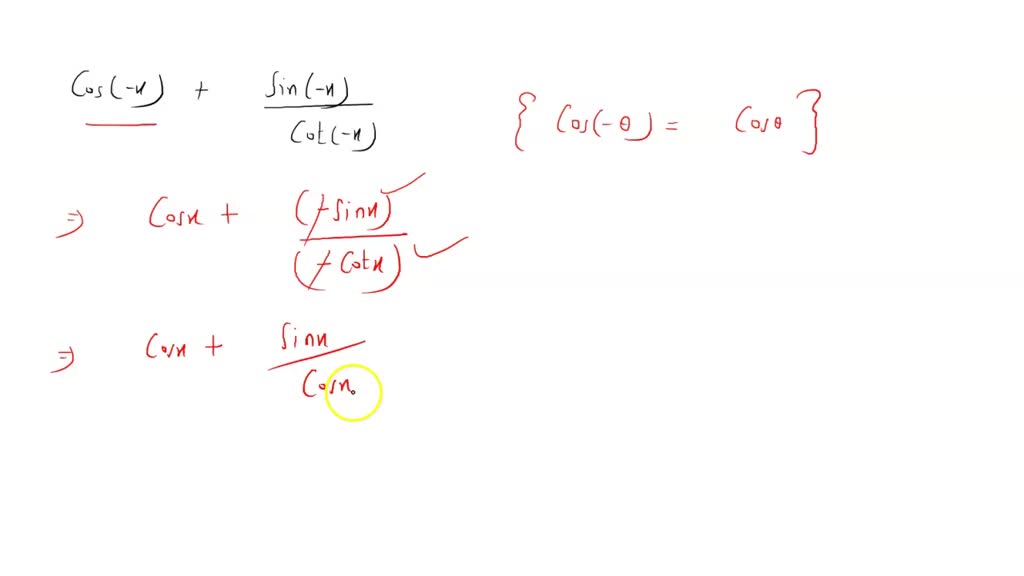 Cos(-x) + Sin(-x) / Cot(-x)
{ Cos(-θ) = Cosθ }
⇒ Cosx + (-Sinx) / (-Cotx)
⇒ Cosx + Sinx / Cosx